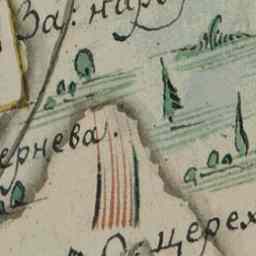 За: нар
ернева.
щерех